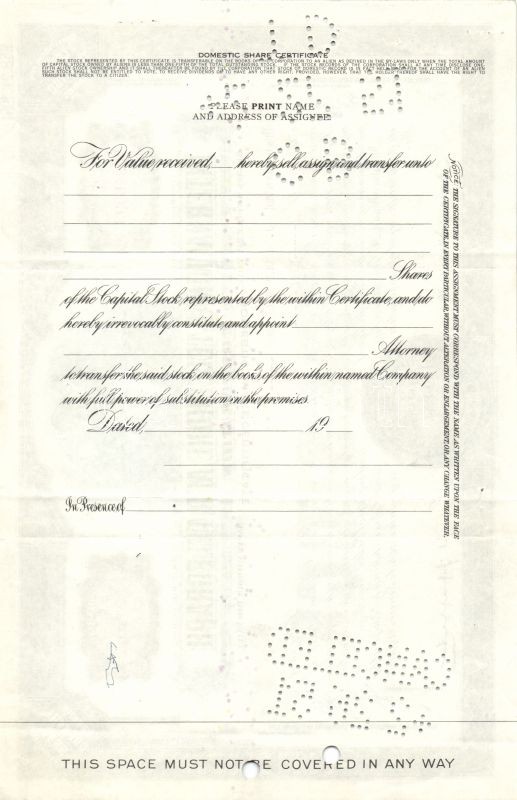 DOMESTIC SHARE CERTIFICATE
THE STOCK REPRESENTED BY THIS CERTIFICATE IS TRANSFERABLE ON THE BOOKS OF THE CORPORATION TO AN ALIEN AS DEFINED IN THE BY-LAWS ONLY WHEN THE TOTAL AMOUNT
OF CAPITAL STOCK OWNED BY ALIENS IS LESS THAN ONE-FIFTH OF THE TOTAL OUTSTANDING STOCK. IF THE STOCK RECORDS OF THE CORPORATION SHALL AT ANY TIME DISCLOSE ONE-
FIFTH ALIEN STOCK OWNERSHIP AND IT SHALL THEREAFTER BE FOUND BY THE CORPORATION THAT STOCK OF DOMESTIC RECORD IS IN FACT HELD BY OR FOR THE ACCOUNT OF AN ALIEN
SUCH STOCK SHALL NOT BE ENTITLED TO VOTE, TO RECEIVE DIVIDENDS OR TO HAVE ANY OTHER RIGHT, PROVIDED, HOWEVER, THAT THE HOLDER THEREOF SHALL HAVE THE RIGHT TO
TRANSFER THE STOCK TO A CITIZEN.
PLEASE PRINT NAME
AND ADDRESS OF ASSIGNEE
For Value received, hereby sell, assign and transfer unto
Shares
of the Capital Stock represented by the within Certificate, and do
hereby irrevocably constitute and appoint
Attorney
to transfer the said stock on the books of the within named Company
with full power of substitution in the premises
Dated, 19
In Presence of
Notice: THE SIGNATURE TO THIS ASSIGNMENT MUST CORRESPOND WITH THE NAME AS WRITTEN UPON THE FACE
OF THE CERTIFICATE, IN EVERY PARTICULAR, WITHOUT ALTERATION OR ENLARGEMENT, OR ANY CHANGE WHATEVER.
THIS SPACE MUST NOT BE COVERED IN ANY WAY